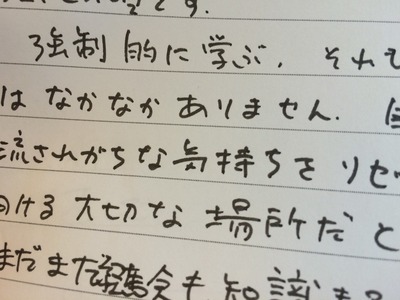 です.
強制的に学ぶ, それ
はなかなかありません.
流されがちな気持ちをリセ
ける大切な場所だと
まだまだ経験も知識も